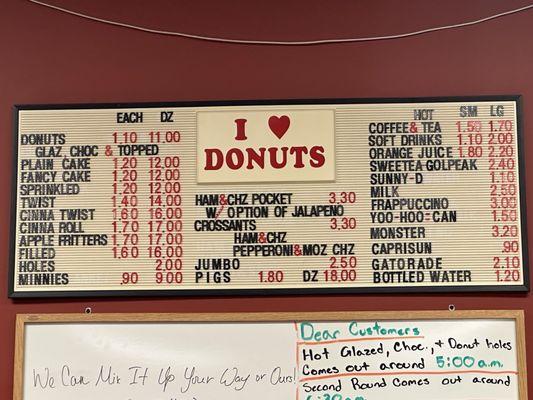 EACH DZ
DONUTS 1.10 11.00
GLAZ, CHOC & TOPPED
PLAIN CAKE 1.20 12.00
FANCY CAKE 1.20 12.00
SPRINKLED 1.20 12.00
TWIST 1.40 14.00
CINNA TWIST 1.60 16.00
CINNA ROLL 1.70 17.00
APPLE FRITTERS 1.70 17.00
FILLED 1.60 16.00
HOLES 2.00
MINNIES .90 9.00
I ♥
DONUTS
HAM&CHZ POCKET 3.30
W/ OPTION OF JALAPENO
CROSSANTS 3.30
HAM&CHZ
PEPPERONI&MOZ CHZ
JUMBO 2.50
PIGS 1.80 DZ 18.00
HOT SM LG
COFFEE& TEA 1.50 1.70
SOFT DRINKS 1.10 2.00
ORANGE JUICE 1.80 2.20
SWEETEA GOLPEAK 2.40
SUNNY-D 1.10
MILK 2.50
FRAPPUCCINO 3.00
YOO-HOO=CAN 1.50
MONSTER 3.20
CAPRISUN .90
GATORADE 2.10
BOTTLED WATER 1.20
We Can Mix It Up Your Way or Ours!
Dear Customers
Hot Glazed, Choc., + Donut holes
Comes out around 5:00 a.m.
Second Round Comes out around
6:30 a.m.